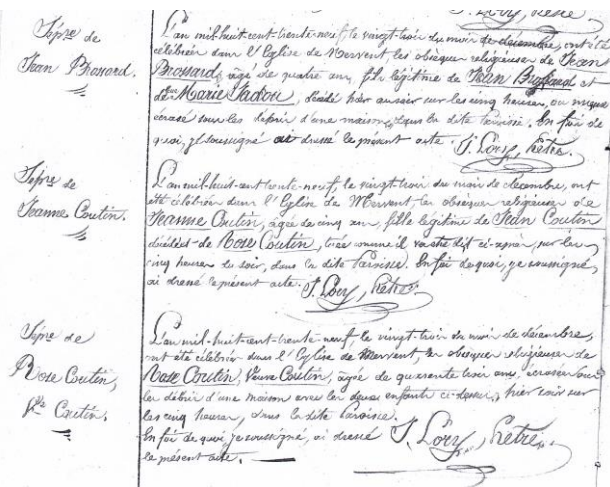 J. Lory, Prêtre.
Sépre de
Jean Brossard.
L'an mil-huit-cent-trente-neuf, le vingt-trois du mois de décembre, ont été
célébrées dans l'Eglise de Mervent, les obsèques religieuses de Jean
Brossard, âgé de quatre ans, fils légitime de Jean Brossard et
de Marie Jadou, décédé hier au soir sur les cinq heures, ou
écrasé sous les débris d'une maison, dans la dite Paroisse. En foi de
quoi, je soussigné ai dressé le présent acte. J. Lory, Prêtre.
Sépre de
Jeanne Coutin.
L'an mil-huit-cent-trente-neuf, le vingt-trois du mois de décembre, ont
été célébrées dans l'Eglise de Mervent, les obsèques religieuses de
Jeanne Coutin, âgée de cinq ans, fille légitime de Jean Coutin
décédé et de Rose Coutin, tuée comme il va être dit ci-après, sur les
cinq heures du soir, dans la dite Paroisse. En foi de quoi, je soussigné,
ai dressé le présent acte. J. Lory, Prêtre.
Sépre de
Rose Coutin,
Ve Coutin.
L'an mil-huit-cent-trente-neuf, le vingt-trois du mois de décembre,
ont été célébrées dans l'Eglise de Mervent, les obsèques religieuses de
Rose Coutin, Veuve Coutin, âgée de quarante trois ans, écrasée sous
les débris d'une maison avec les deux enfants ci-dessus, hier soir sur
les cinq heures, dans la dite Paroisse.
En foi de quoi, je soussigné, ai dressé J. Lory, Prêtre.
le présent acte.